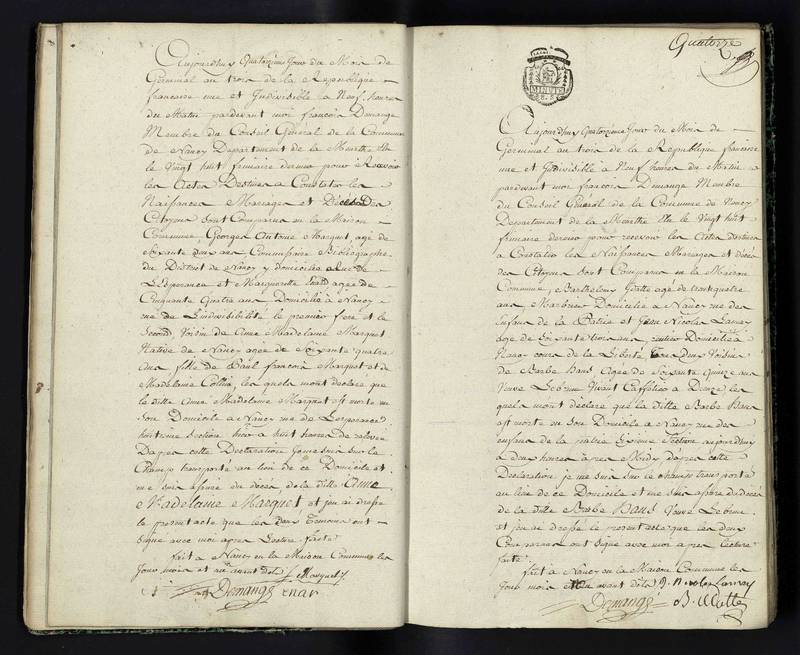 Aujourdhuy Quatorzieme Jour du Mois de
Germinal an trois de la Republique
francaise une et Indivisible a Neuf heures
du Matin pardevant moi francois Demange
Membre du Conseil Général de la Commune
de Nancy Departement de la Meurthe Elu
le Vingt huit frimaire dernier pour Recevoir
les Actes Destinés a Constater les
Naissances Mariages et Décès Des
Citoyens sont Comparus en la Maison
Commune, Georges Antoine Marquet, agé de
Soixante deux ans Commissaire Bibliographe
du District de Nancy y domicilié Rue de
L'Esperance et Margueritte agée de
Cinquante Quatre ans Domiciliée a Nancy
rue de L'indivisibilité le premier frere et la
Second Voisin de Anne Madelaine Marquet
Native de Nancy agée de Soixante quatre
ans fille de Paul francois Marquet et de
Madelaine Collin, les quels mont declaré que
la ditte Anne Madelaine Marquet est morte en
Son Domicile a Nancy rue de L'esperance
huitieme Section hier a huit heures de relevée
Dapres cette Declaration je me suis sur le
Champ transporté au lieu de ce Domicile et
me suis assuré du décès de la ditte Anne
Madelaine Marquet, et jen ai dressé
le present acte que les deux temoins ont
Signé avec moi apres Lecture faite
fait a Nancy en la Maison Commune les
Jour mois et an avant dits Marquet
Demange
Quatorze
MINUTE
Aujourdhuy Quatorzieme Jour du Mois de
Germinal an trois de la Republique francaise
une et Indivisible a Neuf heures du Matin
pardevant moi francois Demange Membre
du Conseil Général de la Commune de Nancy
Departement de la Meurthe Elu le Vingt huit
frimaire dernier pour recevoir les Actes destinés
a Constater les Naissances Mariages et décès
des Citoyens sont Comparus en la Maison
Commune, Barthelemy agé de trentequatre
ans, Marbrier Domicilié a Nancy rue des
Enfans de la Patrie et Jean Nicolas Lamey
agé de Soixante trois ans, rentier Domicilié a
Nancy cours de la Liberté tous deux Voisins
de Barbe Hans Agée de Soixante quinze ans
Veuve Lebrun Vivant Caffetier a Dieuze, les
quels mont déclaré que la ditte Barbe Hans
est morte en Son Domicile a Nancy rue des
Enfans de la patrie Section aujourdhuy
a deux heures apres Midy dapres cette
Déclaration je me suis sur le champ transporté
au lieu de ce Domicile et me suis assuré du décès
de la ditte Barbe Hans Veuve Lebrun
et jen ai dressé le present acte que les deux
Comparans ont Signé avec moi apres lecture
faite
fait a Nancy en la Maison Commune les
Jour mois et an avant dits
Demange